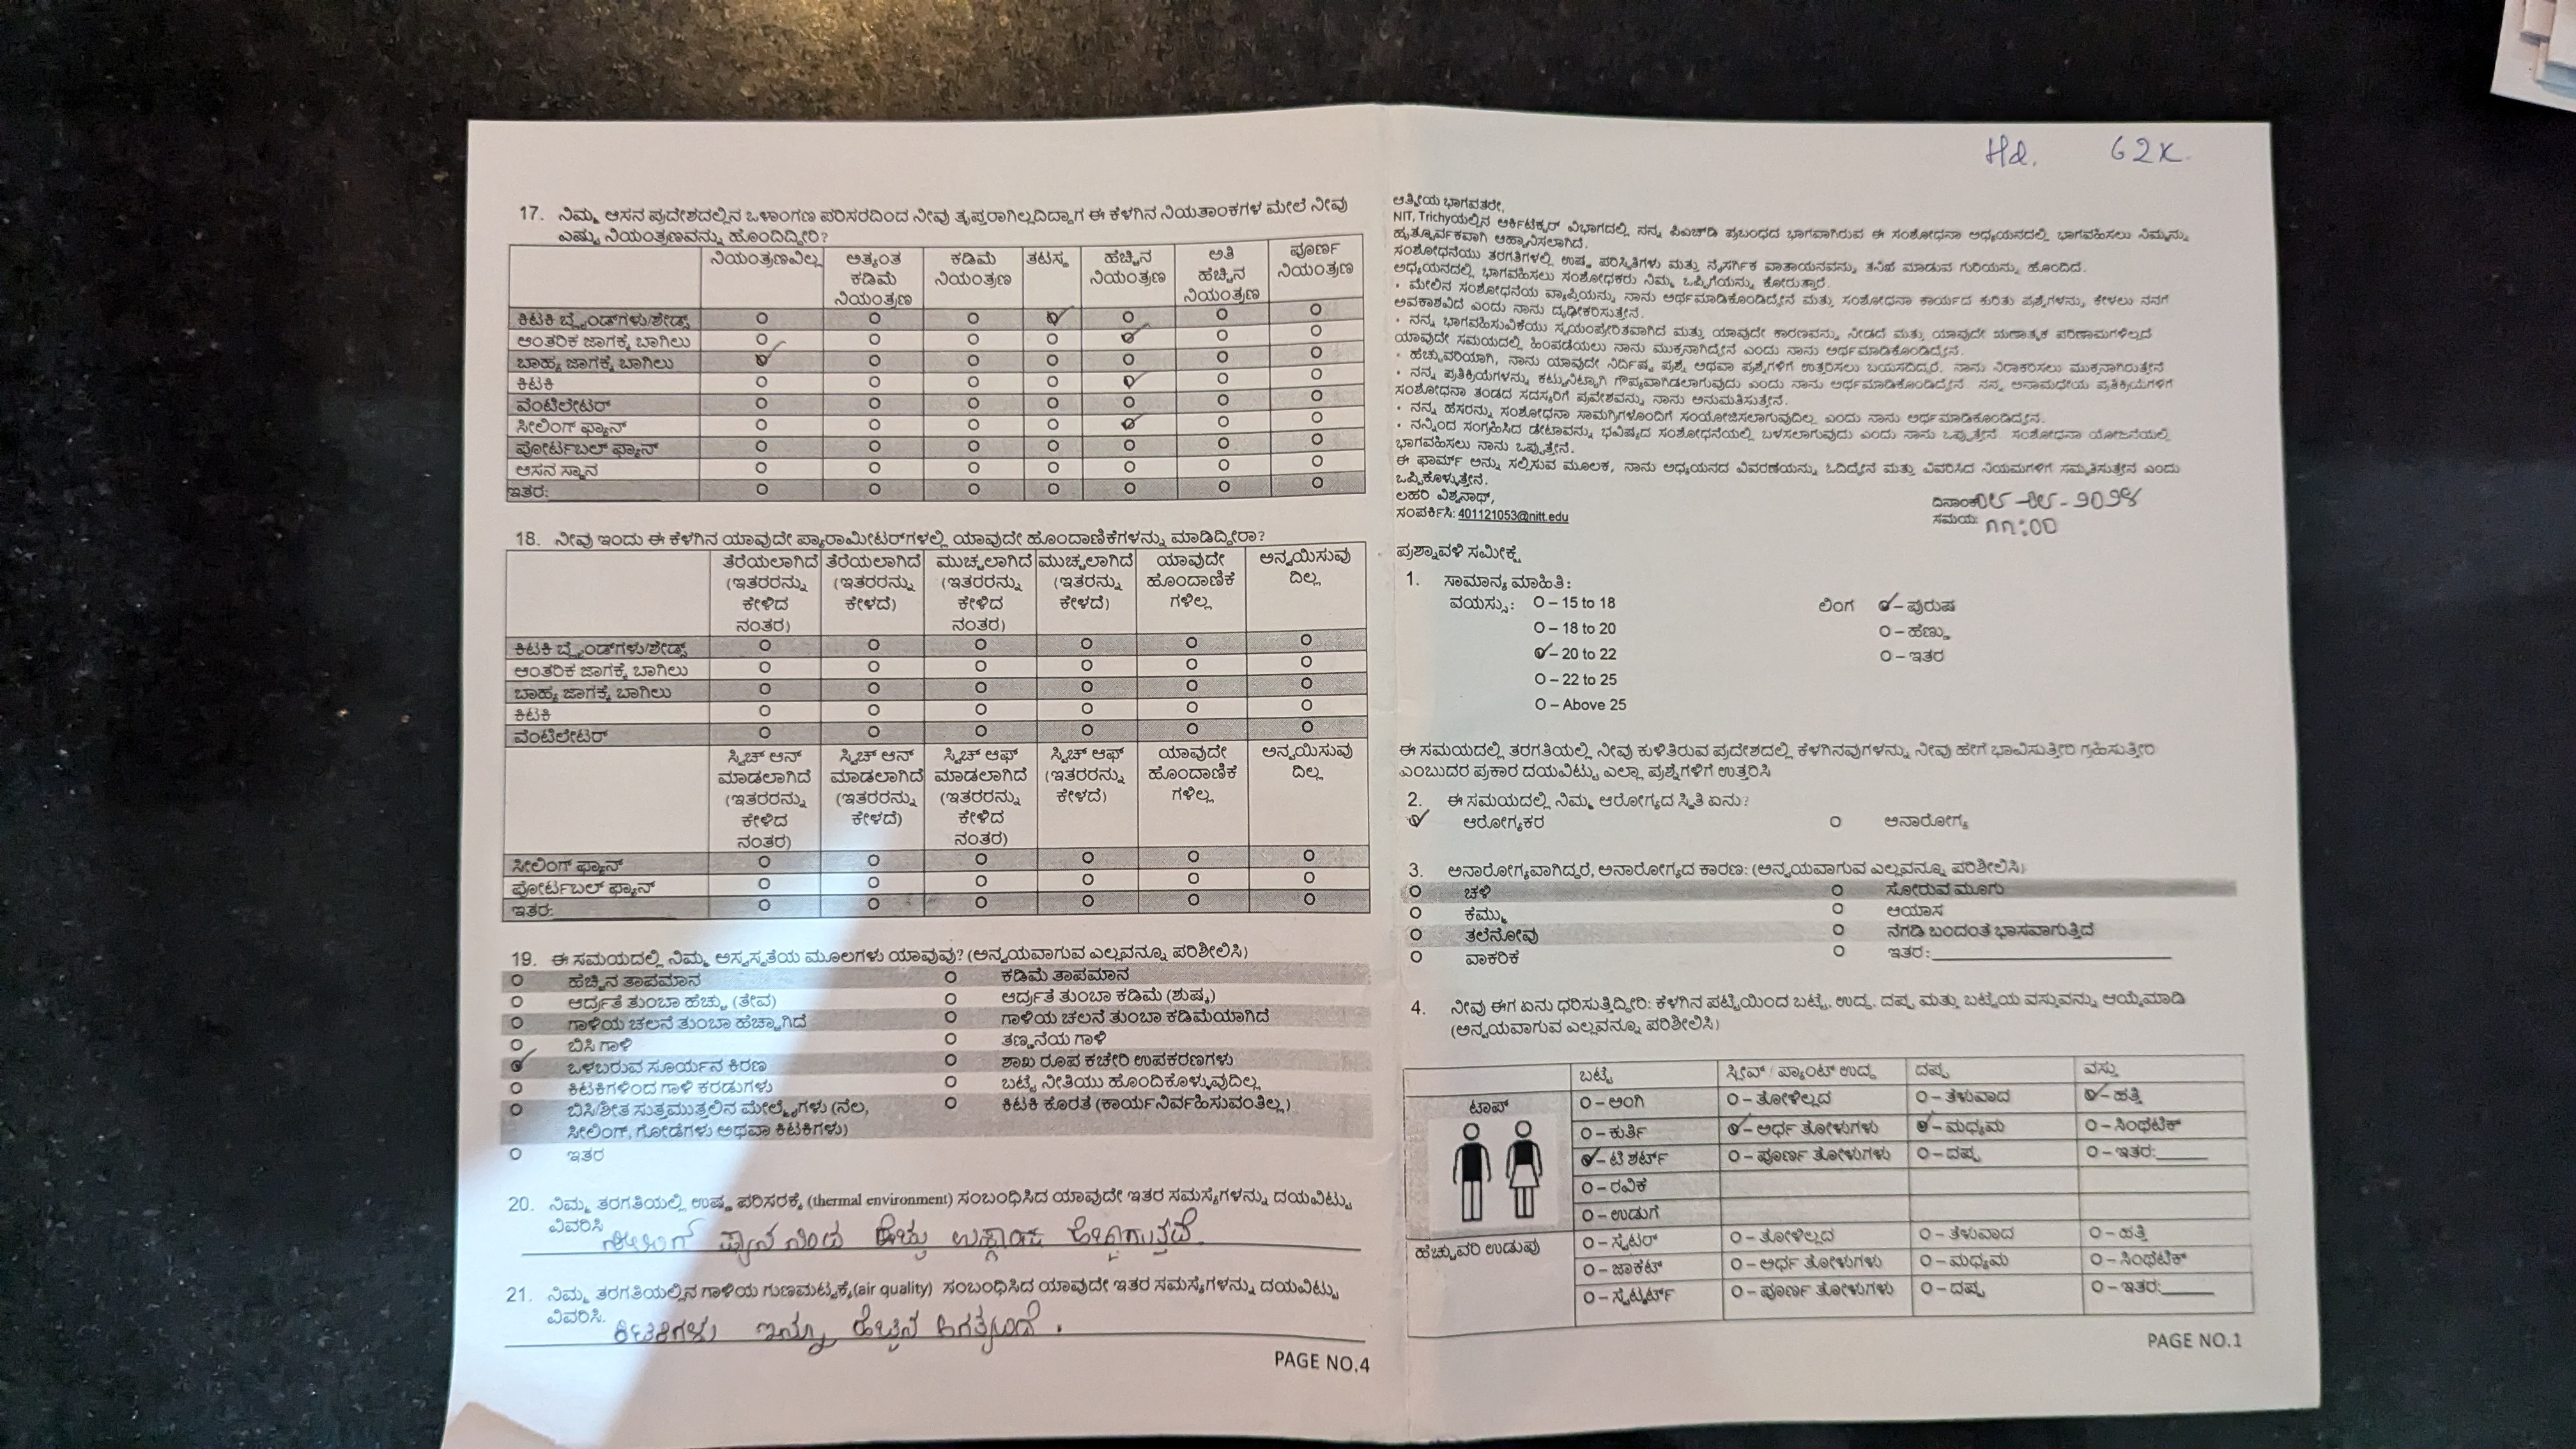 17. ನಿಮ್ಮ ಆಸನ ಪ್ರದೇಶದಲ್ಲಿನ ಒಳಾಂಗಣ ಪರಿಸರದಿಂದ ನೀವು ತೃಪ್ತರಾಗಿಲ್ಲದಿದ್ದಾಗ ಈ ಕೆಳಗಿನ ನಿಯತಾಂಕಗಳ ಮೇಲೆ ನೀವು
ಎಷ್ಟು ನಿಯಂತ್ರಣವನ್ನು ಹೊಂದಿದ್ದೀರಿ?
ನಿಯಂತ್ರಣವಿಲ್ಲ ಅತ್ಯಂತ ಕಡಿಮೆ ನಿಯಂತ್ರಣ ಕಡಿಮೆ ನಿಯಂತ್ರಣ ತಟಸ್ಥ ಹೆಚ್ಚಿನ ನಿಯಂತ್ರಣ ಅತಿ ಹೆಚ್ಚಿನ ನಿಯಂತ್ರಣ ಪೂರ್ಣ ನಿಯಂತ್ರಣ
ಕಿಟಕಿ ಬ್ಲೈಂಡ್‌ಗಳು/ಶೇಡ್ಸ್ O O O O O O O
ಆಂತರಿಕ ಜಾಗಕ್ಕೆ ಬಾಗಿಲು O O O O O O O
ಬಾಹ್ಯ ಜಾಗಕ್ಕೆ ಬಾಗಿಲು O O O O O O O
ಕಿಟಕಿ O O O O O O O
ವೆಂಟಿಲೇಟರ್ O O O O O O O
ಸೀಲಿಂಗ್ ಫ್ಯಾನ್ O O O O O O O
ಪೋರ್ಟಬಲ್ ಫ್ಯಾನ್ O O O O O O O
ಆಸನ ಸ್ಥಾನ O O O O O O O
ಇತರ: O O O O O O O
18. ನೀವು ಇಂದು ಈ ಕೆಳಗಿನ ಯಾವುದೇ ಪ್ಯಾರಾಮೀಟರ್‌ಗಳಲ್ಲಿ ಯಾವುದೇ ಹೊಂದಾಣಿಕೆಗಳನ್ನು ಮಾಡಿದ್ದೀರಾ?
ತೆರೆಯಲಾಗಿದೆ (ಇತರರನ್ನು ಕೇಳಿದ ನಂತರ) ತೆರೆಯಲಾಗಿದೆ (ಇತರರನ್ನು ಕೇಳದೆ) ಮುಚ್ಚಲಾಗಿದೆ (ಇತರರನ್ನು ಕೇಳಿದ ನಂತರ) ಮುಚ್ಚಲಾಗಿದೆ (ಇತರರನ್ನು ಕೇಳದೆ) ಯಾವುದೇ ಹೊಂದಾಣಿಕೆ ಗಳಿಲ್ಲ ಅನ್ವಯಿಸುವು ದಿಲ್ಲ
ಕಿಟಕಿ ಬ್ಲೈಂಡ್‌ಗಳು/ಶೇಡ್ಸ್ O O O O O O
ಆಂತರಿಕ ಜಾಗಕ್ಕೆ ಬಾಗಿಲು O O O O O O
ಬಾಹ್ಯ ಜಾಗಕ್ಕೆ ಬಾಗಿಲು O O O O O O
ಕಿಟಕಿ O O O O O O
ವೆಂಟಿಲೇಟರ್ O O O O O O
ಸ್ವಿಚ್ ಆನ್ ಮಾಡಲಾಗಿದೆ (ಇತರರನ್ನು ಕೇಳಿದ ನಂತರ) ಸ್ವಿಚ್ ಆನ್ ಮಾಡಲಾಗಿದೆ (ಇತರರನ್ನು ಕೇಳದೆ) ಸ್ವಿಚ್ ಆಫ್ ಮಾಡಲಾಗಿದೆ (ಇತರರನ್ನು ಕೇಳಿದ ನಂತರ) ಸ್ವಿಚ್ ಆಫ್ (ಇತರರನ್ನು ಕೇಳದೆ) ಯಾವುದೇ ಹೊಂದಾಣಿಕೆ ಗಳಿಲ್ಲ ಅನ್ವಯಿಸುವು ದಿಲ್ಲ
ಸೀಲಿಂಗ್ ಫ್ಯಾನ್ O O O O O O
ಪೋರ್ಟಬಲ್ ಫ್ಯಾನ್ O O O O O O
ಇತರ: O O O O O O
19. ಈ ಸಮಯದಲ್ಲಿ ನಿಮ್ಮ ಅಸ್ವಸ್ಥತೆಯ ಮೂಲಗಳು ಯಾವುವು? (ಅನ್ವಯವಾಗುವ ಎಲ್ಲವನ್ನೂ ಪರಿಶೀಲಿಸಿ)
O ಹೆಚ್ಚಿನ ತಾಪಮಾನ O ಕಡಿಮೆ ತಾಪಮಾನ
O ಆರ್ದ್ರತೆ ತುಂಬಾ ಹೆಚ್ಚು (ತೇವ) O ಆರ್ದ್ರತೆ ತುಂಬಾ ಕಡಿಮೆ (ಶುಷ್ಕ)
O ಗಾಳಿಯ ಚಲನೆ ತುಂಬಾ ಹೆಚ್ಚಾಗಿದೆ O ಗಾಳಿಯ ಚಲನೆ ತುಂಬಾ ಕಡಿಮೆಯಾಗಿದೆ
O ಬಿಸಿ ಗಾಳಿ O ತಣ್ಣನೆಯ ಗಾಳಿ
O ಒಳಬರುವ ಸೂರ್ಯನ ಕಿರಣ O ಶಾಖ ರೂಪ ಕಚೇರಿ ಉಪಕರಣಗಳು
O ಕಿಟಕಿಗಳಿಂದ ಗಾಳಿ ಕರಡುಗಳು O ಬಟ್ಟೆ ನೀತಿಯು ಹೊಂದಿಕೊಳ್ಳುವುದಿಲ್ಲ
O ಬಿಸಿ/ಶೀತ ಸುತ್ತಮುತ್ತಲಿನ ಮೇಲ್ಮೈಗಳು (ನೆಲ, O ಕಿಟಕಿ ಕೊರತೆ (ಕಾರ್ಯನಿರ್ವಹಿಸುವಂತಿಲ್ಲ)
ಸೀಲಿಂಗ್, ಗೋಡೆಗಳು ಅಥವಾ ಕಿಟಕಿಗಳು)
O ಇತರ
20. ನಿಮ್ಮ ತರಗತಿಯಲ್ಲಿ ಉಷ್ಣ ಪರಿಸರಕ್ಕೆ (thermal environment) ಸಂಬಂಧಿಸಿದ ಯಾವುದೇ ಇತರ ಸಮಸ್ಯೆಗಳನ್ನು ದಯವಿಟ್ಟು
ವಿವರಿಸಿ ಸೀಲಿಂಗ್ ಫ್ಯಾನ ನಿಂದ ಹೆಚ್ಚು
21. ನಿಮ್ಮ ತರಗತಿಯಲ್ಲಿನ ಗಾಳಿಯ ಗುಣಮಟ್ಟಕ್ಕೆ(air quality) ಸಂಬಂಧಿಸಿದ ಯಾವುದೇ ಇತರ ಸಮಸ್ಯೆಗಳನ್ನು ದಯವಿಟ್ಟು
ವಿವರಿಸಿ. ಕಿಟಕಿಗಳು ಇನ್ನೂ ಹೆಚ್ಚಿನ ಅಗತ್ಯವಿದೆ.
PAGE NO.4
Hd. 62K
ಆತ್ಮೀಯ ಭಾಗವತರೇ,
NIT, Trichyಯಲ್ಲಿನ ಆರ್ಕಿಟೆಕ್ಚರ್ ವಿಭಾಗದಲ್ಲಿ ನನ್ನ ಪಿಎಚ್‌ಡಿ ಪ್ರಬಂಧದ ಭಾಗವಾಗಿರುವ ಈ ಸಂಶೋಧನಾ ಅಧ್ಯಯನದಲ್ಲಿ ಭಾಗವಹಿಸಲು ನಿಮ್ಮನ್ನು
ಹೃತ್ಪೂರ್ವಕವಾಗಿ ಆಹ್ವಾನಿಸಲಾಗಿದೆ.
ಸಂಶೋಧನೆಯು ತರಗತಿಗಳಲ್ಲಿ ಉಷ್ಣ ಪರಿಸ್ಥಿತಿಗಳು ಮತ್ತು ನೈಸರ್ಗಿಕ ವಾತಾಯನವನ್ನು ತನಿಖೆ ಮಾಡುವ ಗುರಿಯನ್ನು ಹೊಂದಿದೆ.
ಅಧ್ಯಯನದಲ್ಲಿ ಭಾಗವಹಿಸಲು ಸಂಶೋಧಕರು ನಿಮ್ಮ ಒಪ್ಪಿಗೆಯನ್ನು ಕೋರುತ್ತಾರೆ.
• ಮೇಲಿನ ಸಂಶೋಧನೆಯ ವ್ಯಾಪ್ತಿಯನ್ನು ನಾನು ಅರ್ಥಮಾಡಿಕೊಂಡಿದ್ದೇನೆ ಮತ್ತು ಸಂಶೋಧನಾ ಕಾರ್ಯದ ಕುರಿತು ಪ್ರಶ್ನೆಗಳನ್ನು ಕೇಳಲು ನನಗೆ
ಅವಕಾಶವಿದೆ ಎಂದು ನಾನು ದೃಢೀಕರಿಸುತ್ತೇನೆ.
• ನನ್ನ ಭಾಗವಹಿಸುವಿಕೆಯು ಸ್ವಯಂಪ್ರೇರಿತವಾಗಿದೆ ಮತ್ತು ಯಾವುದೇ ಕಾರಣವನ್ನು ನೀಡದೆ ಮತ್ತು ಯಾವುದೇ ಋಣಾತ್ಮಕ ಪರಿಣಾಮಗಳಿಲ್ಲದೆ
ಯಾವುದೇ ಸಮಯದಲ್ಲಿ ಹಿಂಪಡೆಯಲು ನಾನು ಮುಕ್ತನಾಗಿದ್ದೇನೆ ಎಂದು ನಾನು ಅರ್ಥಮಾಡಿಕೊಂಡಿದ್ದೇನೆ.
• ಹೆಚ್ಚುವರಿಯಾಗಿ, ನಾನು ಯಾವುದೇ ನಿರ್ದಿಷ್ಟ ಪ್ರಶ್ನೆ ಅಥವಾ ಪ್ರಶ್ನೆಗಳಿಗೆ ಉತ್ತರಿಸಲು ಬಯಸದಿದ್ದರೆ, ನಾನು ನಿರಾಕರಿಸಲು ಮುಕ್ತನಾಗಿರುತ್ತೇನೆ
• ನನ್ನ ಪ್ರತಿಕ್ರಿಯೆಗಳನ್ನು ಕಟ್ಟುನಿಟ್ಟಾಗಿ ಗೌಪ್ಯವಾಗಿಡಲಾಗುವುದು ಎಂದು ನಾನು ಅರ್ಥಮಾಡಿಕೊಂಡಿದ್ದೇನೆ. ನನ್ನ ಅನಾಮಧೇಯ ಪ್ರತಿಕ್ರಿಯೆಗಳಿಗೆ
ಸಂಶೋಧನಾ ತಂಡದ ಸದಸ್ಯರಿಗೆ ಪ್ರವೇಶವನ್ನು ನಾನು ಅನುಮತಿಸುತ್ತೇನೆ.
• ನನ್ನ ಹೆಸರನ್ನು ಸಂಶೋಧನಾ ಸಾಮಗ್ರಿಗಳೊಂದಿಗೆ ಸಂಯೋಜಿಸಲಾಗುವುದಿಲ್ಲ ಎಂದು ನಾನು ಅರ್ಥಮಾಡಿಕೊಂಡಿದ್ದೇನೆ.
• ನನ್ನಿಂದ ಸಂಗ್ರಹಿಸಿದ ಡೇಟಾವನ್ನು ಭವಿಷ್ಯದ ಸಂಶೋಧನೆಯಲ್ಲಿ ಬಳಸಲಾಗುವುದು ಎಂದು ನಾನು ಒಪ್ಪುತ್ತೇನೆ. ಸಂಶೋಧನಾ ಯೋಜನೆಯಲ್ಲಿ
ಭಾಗವಹಿಸಲು ನಾನು ಒಪ್ಪುತ್ತೇನೆ.
ಈ ಫಾರ್ಮ್ ಅನ್ನು ಸಲ್ಲಿಸುವ ಮೂಲಕ, ನಾನು ಅಧ್ಯಯನದ ವಿವರಣೆಯನ್ನು ಓದಿದ್ದೇನೆ ಮತ್ತು ವಿವರಿಸಿದ ನಿಯಮಗಳಿಗೆ ಸಮ್ಮತಿಸುತ್ತೇನೆ ಎಂದು
ಒಪ್ಪಿಕೊಳ್ಳುತ್ತೇನೆ.
ಲಹರಿ ವಿಶ್ವನಾಥ್,
ಸಂಪರ್ಕಿಸಿ: 401121053@nitt.edu
ದಿನಾಂಕ ೦೮-೦೮-೨೦೨೪
ಸಮಯ: ೧೧:೦೦
ಪ್ರಶ್ನಾವಳಿ ಸಮೀಕ್ಷೆ
1. ಸಾಮಾನ್ಯ ಮಾಹಿತಿ:
ವಯಸ್ಸು: O – 15 to 18 ಲಿಂಗ O – ಪುರುಷ
O – 18 to 20 O – ಹೆಣ್ಣು
O – 20 to 22 O – ಇತರ
O – 22 to 25
O – Above 25
ಈ ಸಮಯದಲ್ಲಿ ತರಗತಿಯಲ್ಲಿ ನೀವು ಕುಳಿತಿರುವ ಪ್ರದೇಶದಲ್ಲಿ ಕೆಳಗಿನವುಗಳನ್ನು ನೀವು ಹೇಗೆ ಭಾವಿಸುತ್ತೀರಿ ಗ್ರಹಿಸುತ್ತೀರಿ
ಎಂಬುದರ ಪ್ರಕಾರ ದಯವಿಟ್ಟು ಎಲ್ಲಾ ಪ್ರಶ್ನೆಗಳಿಗೆ ಉತ್ತರಿಸಿ
2. ಈ ಸಮಯದಲ್ಲಿ ನಿಮ್ಮ ಆರೋಗ್ಯದ ಸ್ಥಿತಿ ಏನು?
O ಆರೋಗ್ಯಕರ O ಅನಾರೋಗ್ಯ
3. ಅನಾರೋಗ್ಯವಾಗಿದ್ದರೆ, ಅನಾರೋಗ್ಯದ ಕಾರಣ: (ಅನ್ವಯವಾಗುವ ಎಲ್ಲವನ್ನೂ ಪರಿಶೀಲಿಸಿ)
O ಚಳಿ O ಸೋರುವ ಮೂಗು
O ಕೆಮ್ಮು O ಆಯಾಸ
O ತಲೆನೋವು O ನೆಗಡಿ ಬಂದಂತೆ ಭಾಸವಾಗುತ್ತಿದೆ
O ವಾಕರಿಕೆ O ಇತರ:
4. ನೀವು ಈಗ ಏನು ಧರಿಸುತ್ತಿದ್ದೀರಿ: ಕೆಳಗಿನ ಪಟ್ಟಿಯಿಂದ ಬಟ್ಟೆ, ಉದ್ದ, ದಪ್ಪ ಮತ್ತು ಬಟ್ಟೆಯ ವಸ್ತುವನ್ನು ಆಯ್ಕೆಮಾಡಿ
(ಅನ್ವಯವಾಗುವ ಎಲ್ಲವನ್ನೂ ಪರಿಶೀಲಿಸಿ)
ಬಟ್ಟೆ ಸ್ಲೀವ್ / ಪ್ಯಾಂಟ್ ಉದ್ದ ದಪ್ಪ ವಸ್ತು
ಟಾಪ್ O – ಅಂಗಿ O – ತೋಳಿಲ್ಲದ O – ತೆಳುವಾದ O – ಹತ್ತಿ
O – ಕುರ್ತಿ O – ಅರ್ಧ ತೋಳುಗಳು O – ಮಧ್ಯಮ O – ಸಿಂಥೆಟಿಕ್
O – ಟಿ ಶರ್ಟ್ O – ಪೂರ್ಣ ತೋಳುಗಳು O – ದಪ್ಪ O – ಇತರ:
O – ರವಿಕೆ
O – ಉಡುಗೆ
ಹೆಚ್ಚುವರಿ ಉಡುಪು O – ಸ್ವೆಟರ್ O – ತೋಳಿಲ್ಲದ O – ತೆಳುವಾದ O – ಹತ್ತಿ
O – ಜಾಕೆಟ್ O – ಅರ್ಧ ತೋಳುಗಳು O – ಮಧ್ಯಮ O – ಸಿಂಥೆಟಿಕ್
O – ಸ್ವೆಟ್ಶರ್ಟ್ O – ಪೂರ್ಣ ತೋಳುಗಳು O – ದಪ್ಪ O – ಇತರ:
PAGE NO.1